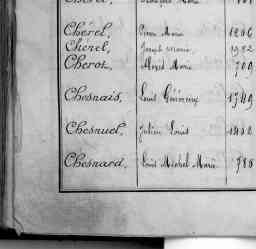 Chérel, Pierre Marie 1206
Chérel, Joseph Marie 1982
Cheroz, Alexis Marie 709
Chesnais, Louis 1749
Chesnuel, Julien Louis 1432
Chesnard, Louis Michel Marie 788